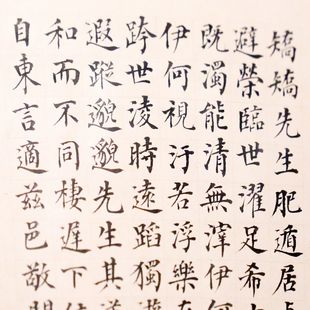 矯矯先生肥遁居
避榮臨世濯足希
既濁能清無滓伊何
伊何視汙若浮樂在
跨世淩時遠蹈獨遊
遐蹤邈邈先生其道
和而不同棲遲下
自東言適茲邑敬